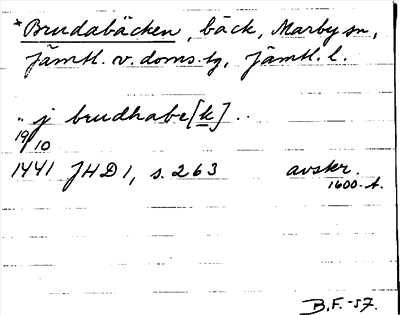 *Brudabäcken, bäck, Marby sn,
Jämtl. v. doms. tg, Jämtl. l.
.. j brudhabe[k] ..
19/10
1441 JHD 1, s. 263 avskr.
1600-t.
B.F. -57.